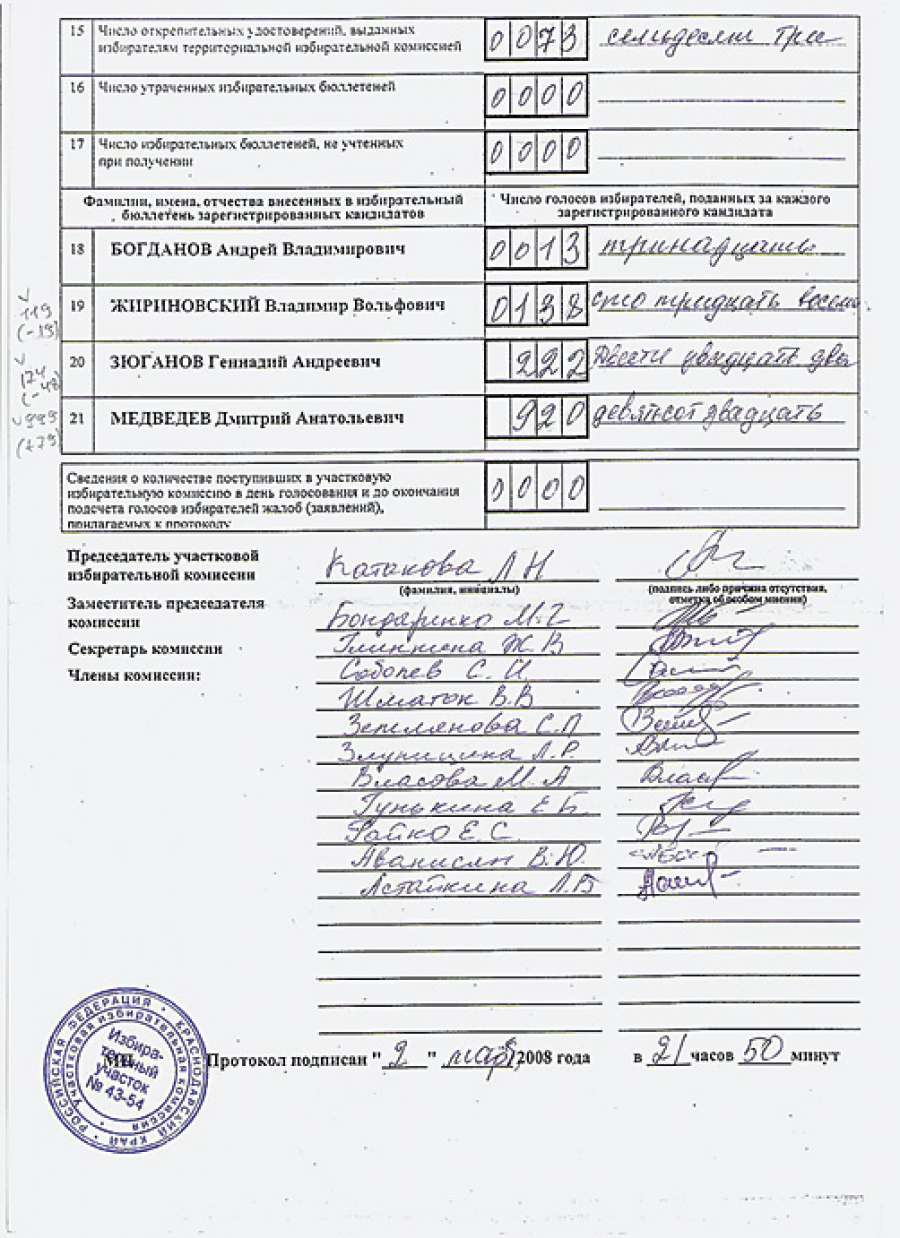 15 Число открепительных удостоверений, выданных
избирателям территориальной избирательной комиссией 0073 семьдесят три
16 Число утраченных избирательных бюллетеней 0000
17 Число избирательных бюллетеней, не учтенных
при получении 0000
Фамилии, имена, отчества внесенных в избирательный
бюллетень зарегистрированных кандидатов
Число голосов избирателей, поданных за каждого
зарегистрированного кандидата
18 БОГДАНОВ Андрей Владимирович 0013 тринадцать
119
(-19)
19 ЖИРИНОВСКИЙ Владимир Вольфович 0138 сто тридцать восемь
174
(-48)
20 ЗЮГАНОВ Геннадий Андреевич 222 Двести двадцать два
999
(+79)
21 МЕДВЕДЕВ Дмитрий Анатольевич 920 девятсот двадцать
Сведения о количестве поступивших в участковую
избирательную комиссию в день голосования и до окончания
подсчета голосов избирателей жалоб (заявлений),
прилагаемых к протоколу 0000
Председатель участковой
избирательной комиссии Катакова Л Н
(фамилия, инициалы)
(подпись либо причина отсутствия,
отметка об особом мнении)
Заместитель председателя
комиссии Бондаренко М. Г
Секретарь комиссии Ж. В
Члены комиссии: Соболев С. И.
Шматок В. В
Землянова С. П
Л. Р.
Власова М. А
Гунькина Е Б.
Файко Е. С.
Аванисян В. Ю.
Астайкина Л. В
РОССИЙСКАЯ ФЕДЕРАЦИЯ • КРАСНОДАРСКИЙ КРАЙ •
Участковая избирательная комиссия
Избира-
тельный
участок
№ 43-54
МП Протокол подписан " 2 " марта 2008 года в 21 часов 50 минут